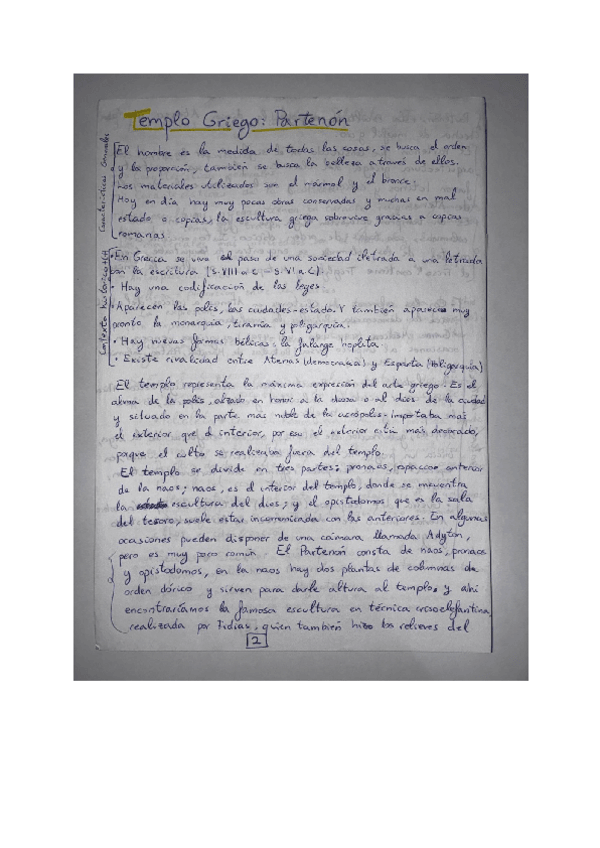 Templo Griego: Partenón
Características Generales
El hombre es la medida de todas las cosas, se busca el orden
y la proporción, también se busca la belleza a través de ellos.
Los materiales utilizados son el mármol y el bronce.
Hoy en día hay muy pocas obras conservadas y muchas en mal
estado o copias, la escultura griega sobrevive gracias a copias
romanas.
Contexto histórico
• En Grecia se vive el paso de una sociedad iletrada a una letrada
con la escritura (s. VIII a.C. - s. VI a.C).
• Hay una codificación de las leyes.
• Aparecen las polis, las ciudades-estado. Y también aparecen muy
pronto la monarquía, tiranía y
• Hay nuevas formas bélicas: la falange hoplita
• Existe rivalidad entre Atenas (democracia) y Esparta
El templo representa la máxima expresión del arte griego. Es el
alma de la polis, alzado en honor a la diosa o al dios de la ciudad
y situado en la parte más noble de la acrópolis. importaba más
el exterior que el interior, por eso el exterior está más decorado,
porque el culto se realizaba fuera del templo.
El templo se divide en tres partes: pronaos, espacio anterior
de la naos; naos, es el interior del templo, donde se encuentra
la escultura del dios; y el opistodomos que es la sala
del tesoro, suele estar incomunicada con las anteriores. En algunas
ocasiones pueden disponer de una cámara llamada Adyton,
pero es muy poco común. El Partenón consta de naos, pronaos
y opistodomos, en la naos hay dos plantas de columnas de
orden dórico y sirven para darle altura al templo, y ahí
encontraríamos la famosa escultura en técnica crisoelefantina
realizada por Fidias, quien también hizo los relieves del
2